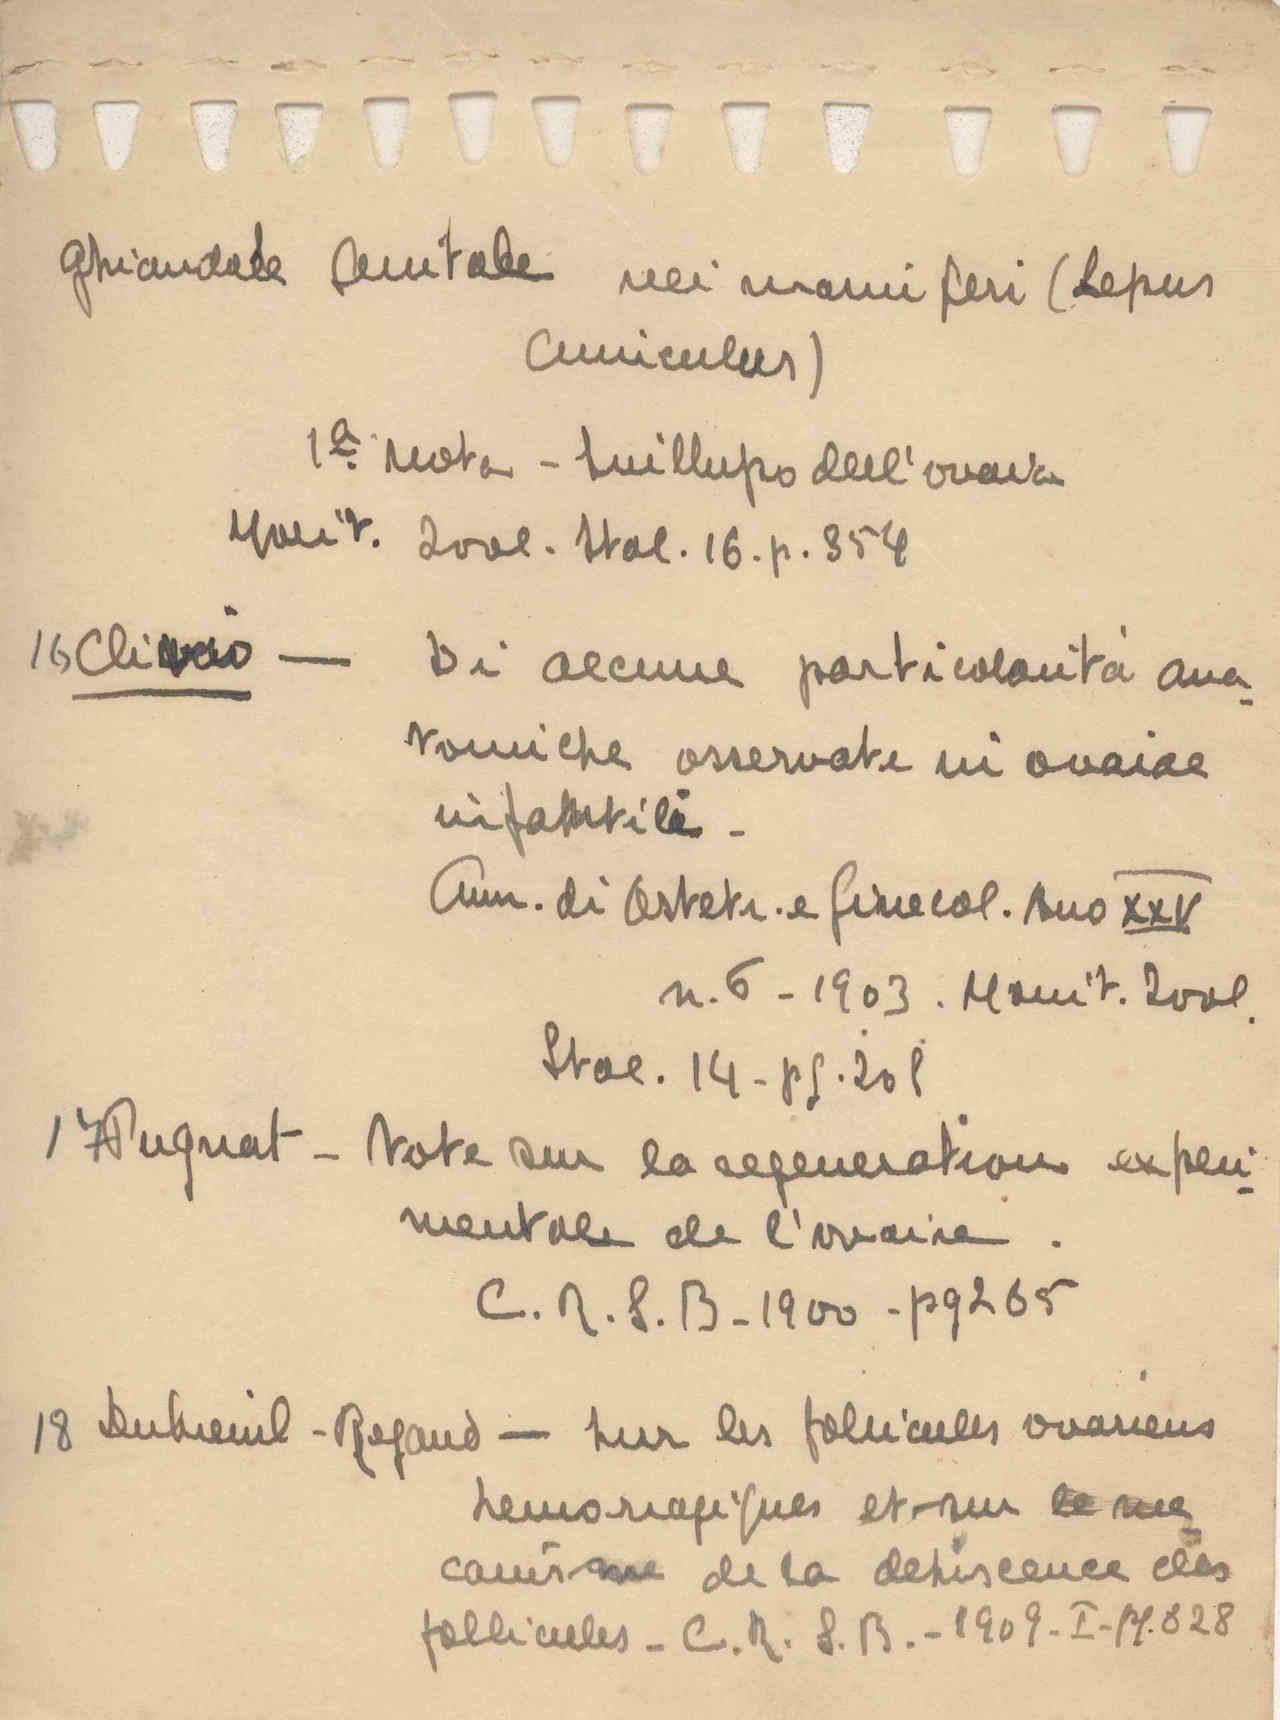 Ghiandole Genitale nei mamiferi (Lepus
Cuniculus)
1ª nota - Sviluppo dell'ovaia
Monit. Zool. Ital. 16. p. 354
16 Clivio — Di alcune particolarità ana-
tomiche osservate in ovaiae
infantili -
Ann. di Ostetr. e Ginecol. Ano XXV
n. 6 - 1903. Monit. Zool.
Ital. 14 - pg. 201
17 Pugnat - Note sur la regeneration experi-
mentale de l'ovaire.
C. R. S. B - 1900 - pg 265
18 Dubreuil - Regaud — Sur les follicules ovariens
hemorragiques et sur le me-
canisme de la dehiscence des
follicules - C. R. S. B. - 1909 - I - pg. 828